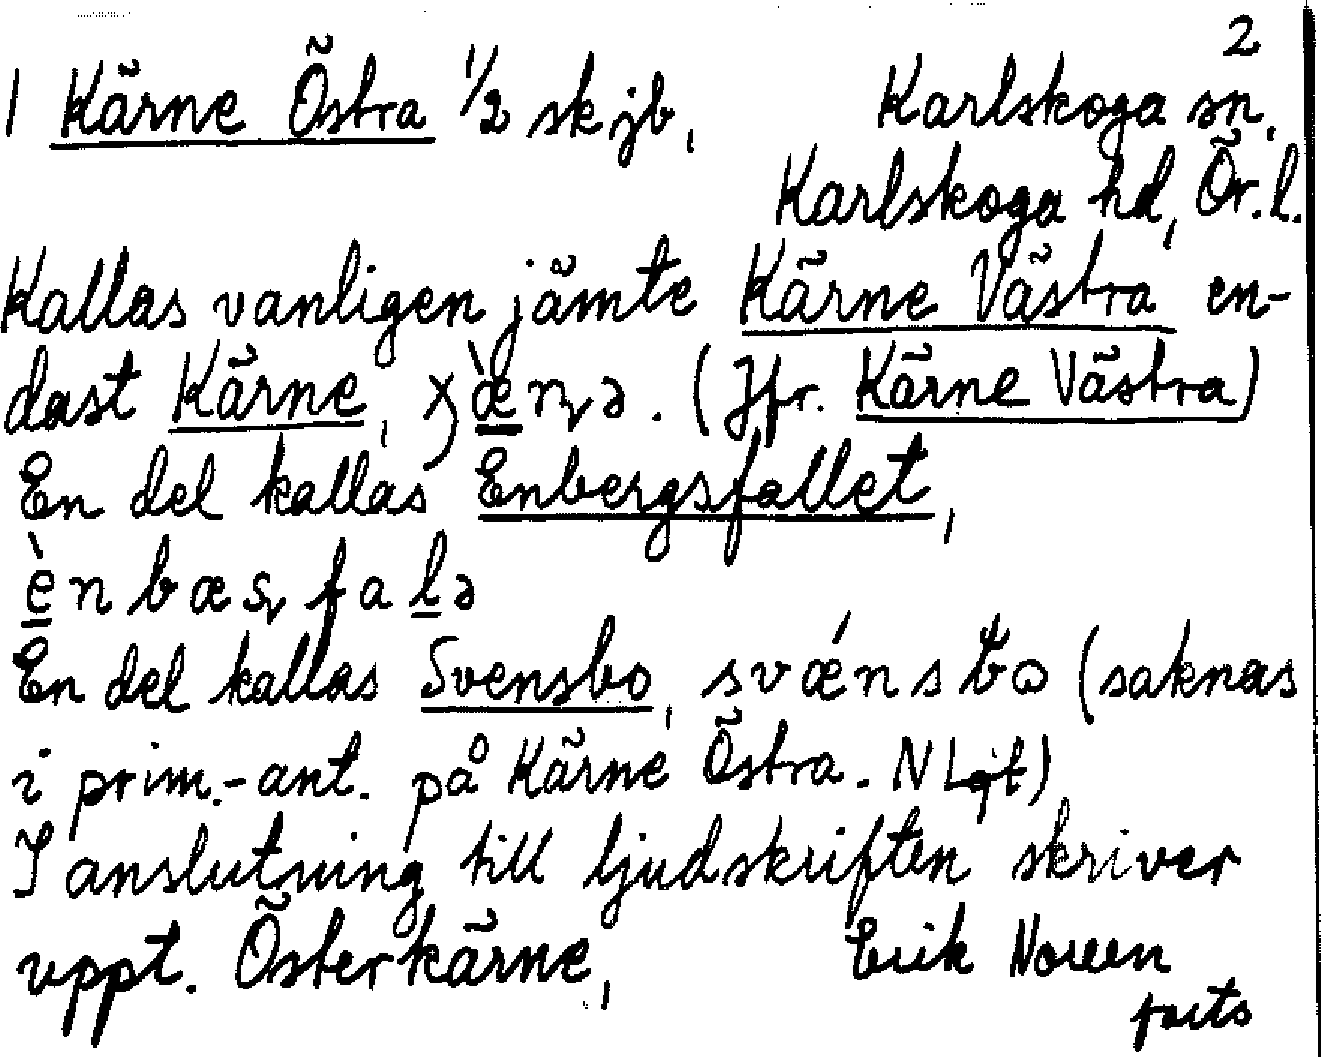 2
1 Kärne Östra 1/2 skjb, Karlskoga sn,
Karlskoga hd, Ör.l.
Kallas vanligen jämte Kärne Västra en-
dast Kärne, χ̀æɳə. (Jfr. Kärne Västra)
En del kallas Enbergsfallet,
ènbæʂfalə
En del kallas Svensbo, svǽnsbɷ (saknas
i prim.-ant. på Kärne Östra. N Lqt)
I anslutning till ljudskriften skriver
uppt. Österkärne, Erik Noreen
forts